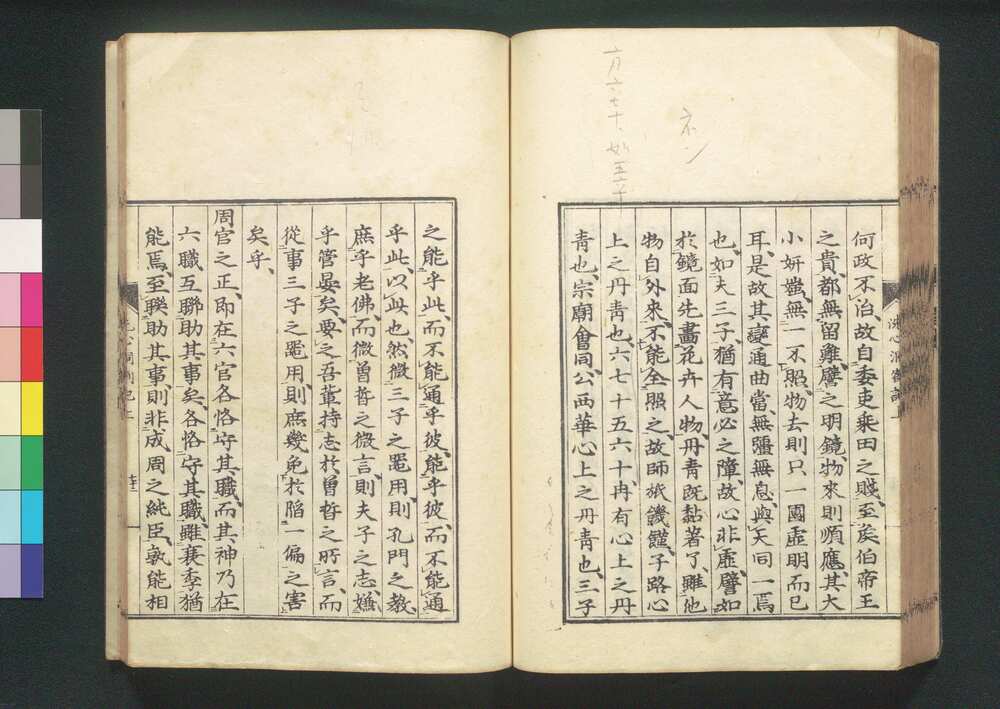 何政不治、故自委吏乘田之賤、至矦伯帝王
之貴、都無留難、譬之明鏡、物來則順應、其大
小妍媸、無一不照、物去則只一圓虛明而已
耳、是故其變通曲當、無疆無息、與天同一焉
也、如夫三子、猶有意必之障、故心非虛、譬如
於鏡面先畫花卉人物、丹青既黏著了、雖他
物自外來、不能全照之、故師旅饑饉、子路心
上之丹青也、六七十五六十、冉有心上之丹
青也、宗廟會同、公西華心上之丹青也、三子
之能乎此、而不能通乎彼、能乎彼、而不能通
乎此、以此也、然微三子之噐用、則孔門之教、
庶乎老佛、而微曾晳之微言、則夫子之志、嫌
乎管晏矣、要之吾輩持志於曾晳之所言、而
從事三子之噐用、則庶幾免於陷一偏之害
矣乎、
周官之正、即在六官各恪守其職、而其神乃在
六職互聯助其事矣、各恪守其職、雖衰季猶
能焉、至聯助其事、則非成周之純臣、孰能相